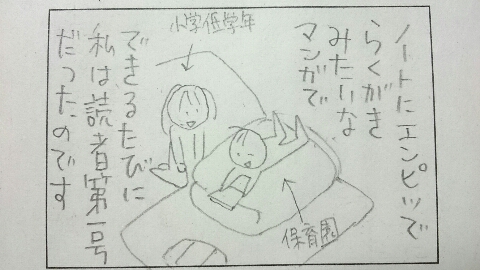 ノートにエンピツで
らくがき
みたいな
マンガで
小学低学年
保育園
できるたびに
私は読者第一号
だったのです